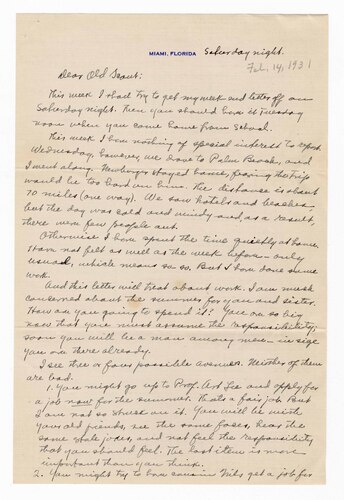 MIAMI, FLORIDA
Saturday night.
Feb. 14, 1931
Dear Old Scout:
This week I shall try to get my week end letter off on
Saturday night. Then you should have it Tuesday
noon when you come home from School.
This week I have nothing of special interest to report.
Wednesday, however, we drove to Palm Beach, and
I went along. stayed home, fearing the trip
would be too hard on him. The distance is about
70 miles (one way). We saw hotels and beaches
but the day was cold and windy and, as a result,
there were few people out.
Otherwise I have spent the time quietly at home.
Have not felt as well as the week before – only
usual, which means so so. But I have done some
work.
And this letter will treat about work. I am much
concerned about the summer for you and sister.
How are you going to spend it? You are so big
now that you must assume the responsibility;
soon you will be a man among men – in size
you are there already.
I see three or four possible avenues. Neither of them
are bad.
1. You might go up to Prof. Art Lee and apply for
a job now for the summer. That's a fair job. But
I am not so struck on it. You will be with
your old friends, see the same faces, hear the
same stale jokes, and not feel the responsibility
that you should feel. The last item is more
important than you think.
2. You might try to have cousin Nils get a job for